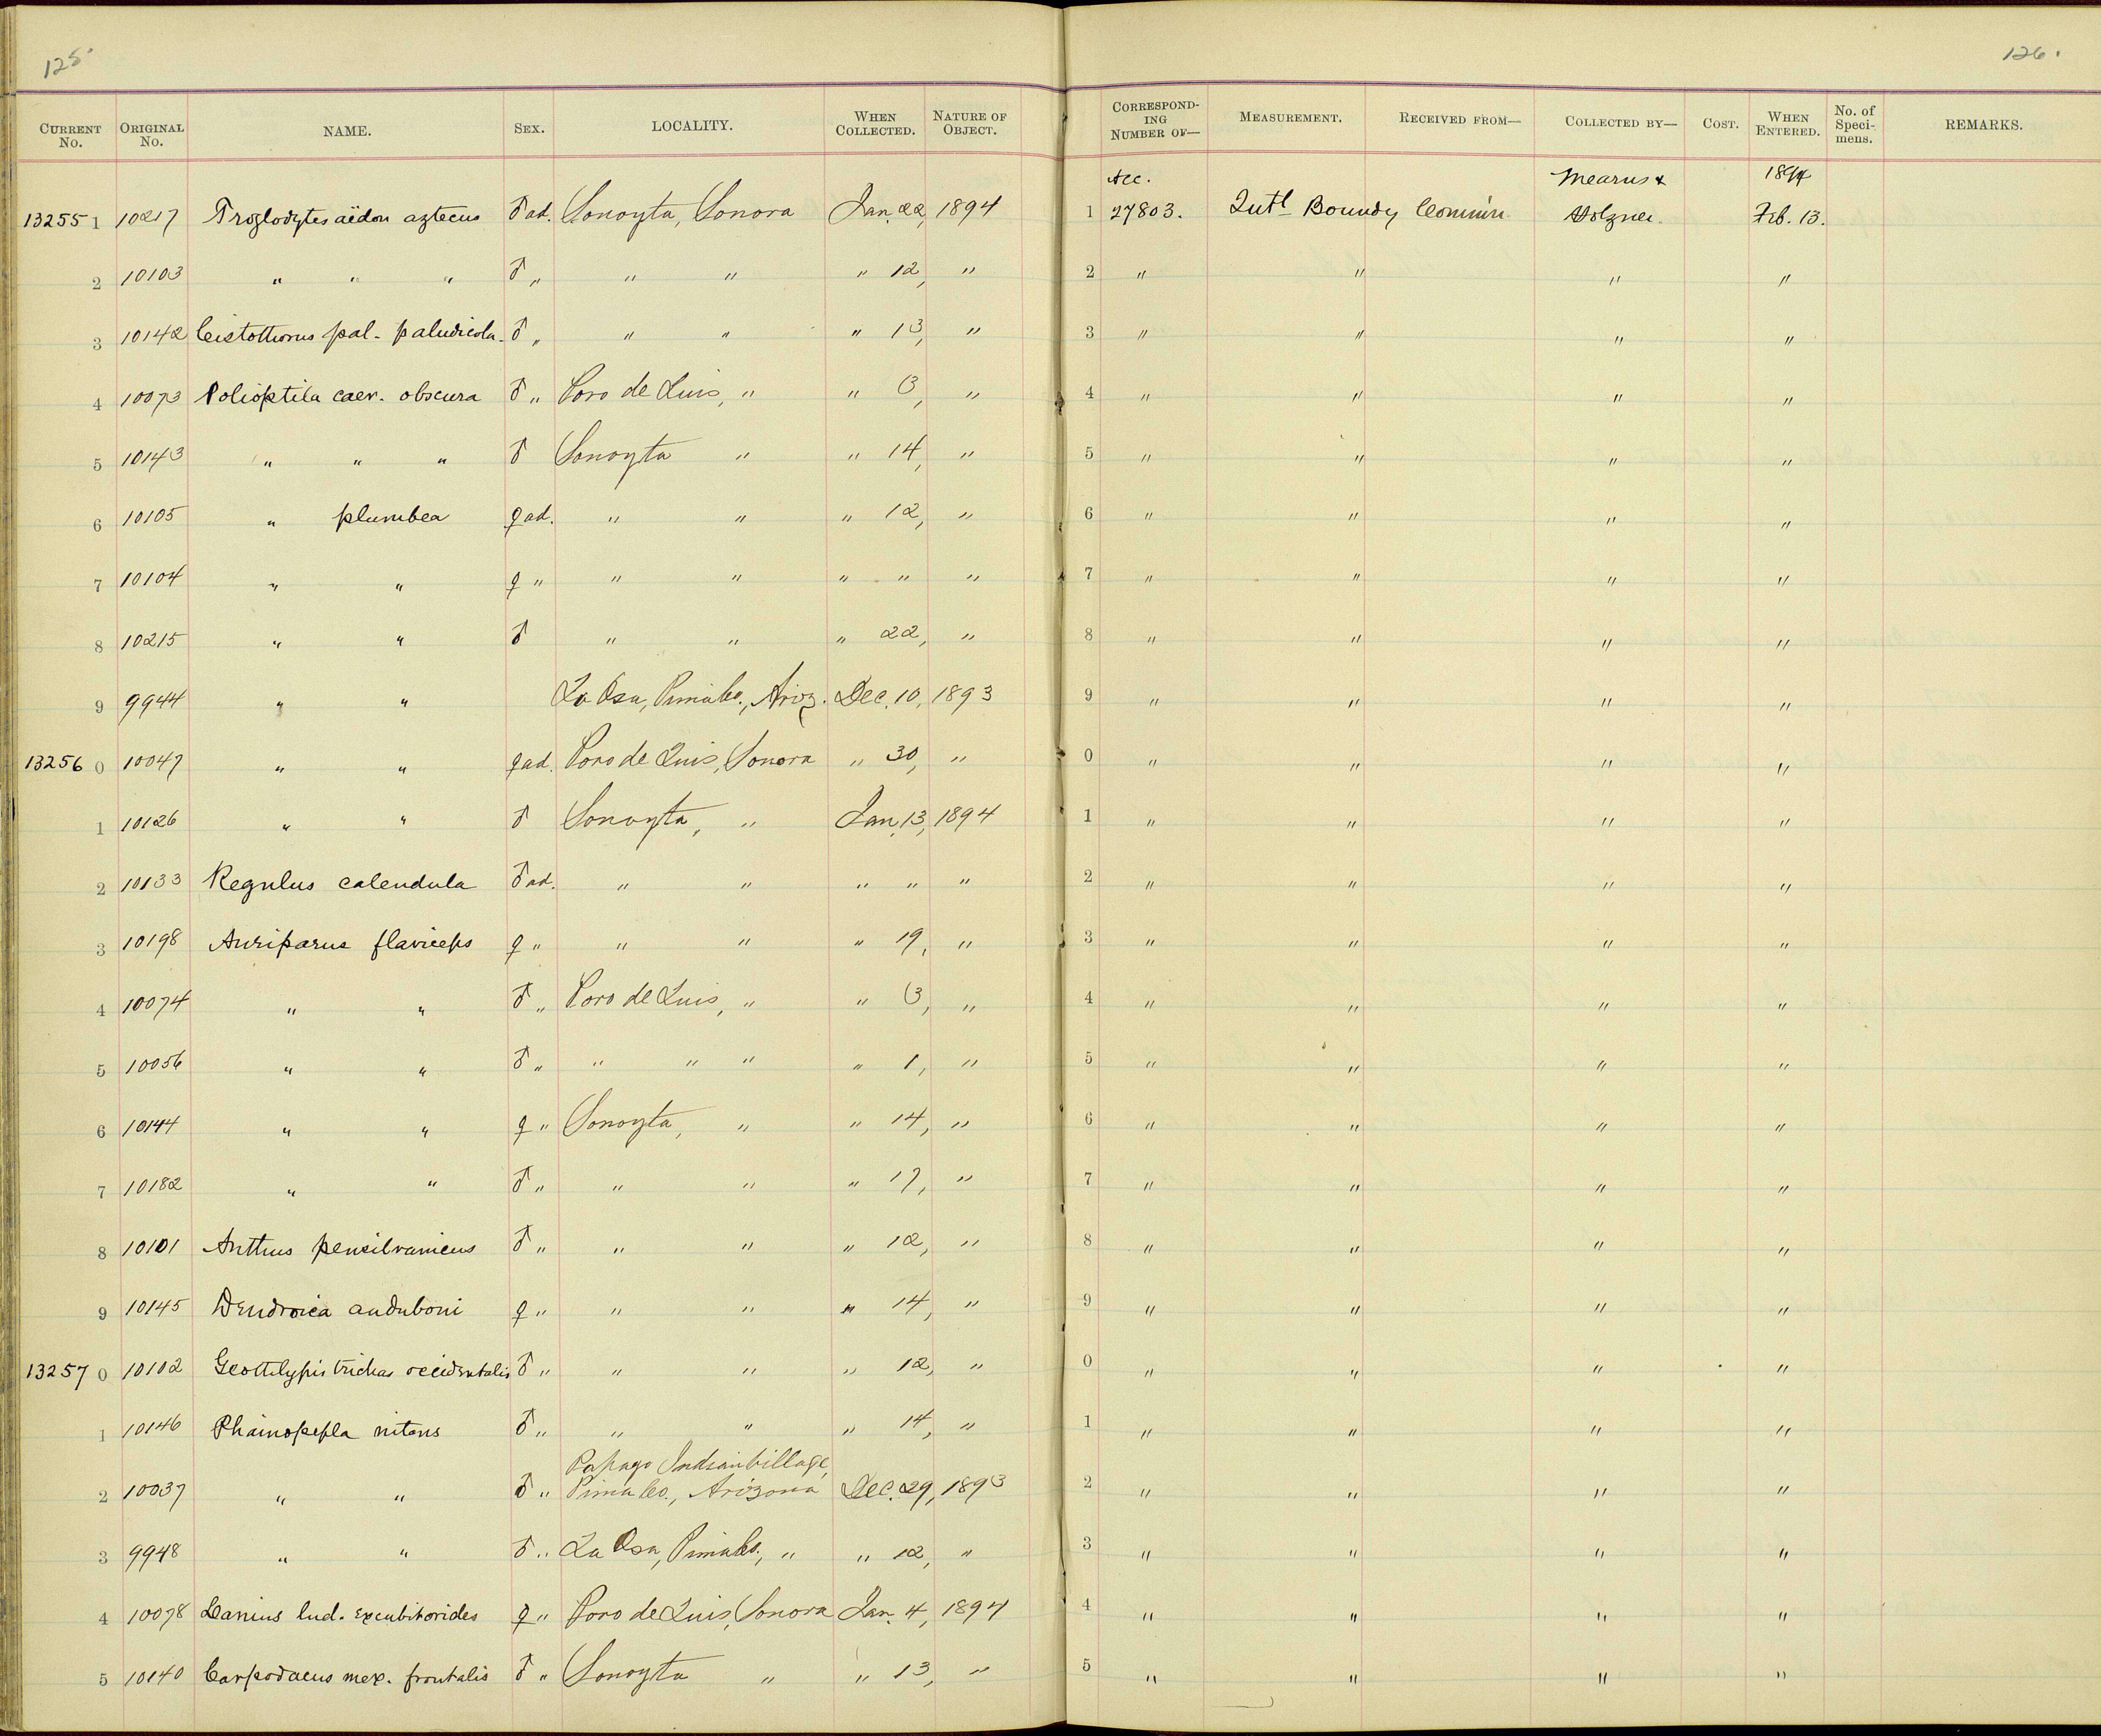 125
126.
CURRENT No. ORIGINAL No. NAME. SEX. LOCALITY. WHEN COLLECTED. NATURE OF OBJECT. CORRESPONDING NUMBER OF— MEASUREMENT. RECEIVED FROM— COLLECTED BY— COST. WHEN ENTERED. No. of Specimens. REMARKS.
Acc. Mearns & 1894
13255 1 10217 Troglodytes aëdon aztecus ♂ ad. Sonoyta, Sonora Jan. 22, 1894 1 27803. Intl Boundy Commn Holzner. Feb. 13.
2 10103 " " " ♂ " " " " 12, " 2 " " " "
3 10142 Cistothorus pal. paludicola. ♂ " " " " 13, " 3 " " " "
4 10073 Polioptila caer. obscura ♂ " Poro de Luis, " " 3, " 4 " " " "
5 10143 " " " ♂ Sonoyta " " 14, " 5 " " " "
6 10105 " plumbea ♀ ad. " " " 12, " 6 " " " "
7 10104 " " ♀ " " " " " " 7 " " " "
8 10215 " " ♂ " " " 22, " 8 " " " "
9 9944 " " La Osa, Pima Co., Ariz. Dec. 10, 1893 9 " " " "
13256 0 10047 " " ♀ ad. Poro de Luis, Sonora " 30, " 0 " " " "
1 10126 " " ♂ Sonoyta, " Jan. 13, 1894 1 " " " "
2 10133 Regulus calendula ♂ ad. " " " " " 2 " " " "
3 10198 Auriparus flaviceps ♀ " " " " 19, " 3 " " " "
4 10074 " " ♂ " Poro de Luis, " " 3, " 4 " " " "
5 10056 " " ♂ " " " " " 1, " 5 " " " "
6 10144 " " ♀ " Sonoyta, " " 14, " 6 " " " "
7 10182 " " ♂ " " " " 17, " 7 " " " "
8 10101 Anthus pensilvanicus ♂ " " " " 12, " 8 " " " "
9 10145 Dendroica auduboni ♀ " " " " 14, " 9 " " " "
13257 0 10102 Geothlypis trichas occidentalis ♂ " " " " 12, " 0 " " " "
1 10146 Phainopepla nitens ♂ " " " " 14, " 1 " " " "
Papago Indian Village,
2 10037 " " ♂ " Pima Co., Arizona Dec. 29, 1893 2 " " " "
3 9948 " " ♂ " La Osa, Pima Co., " " 12, " 3 " " " "
4 10078 Lanius lud. excubitorides ♀ " Poro de Luis, Sonora Jan. 4, 1894 4 " " " "
5 10140 Carpodacus mex. frontalis ♂ " Sonoyta " " 13, " 5 " " " "